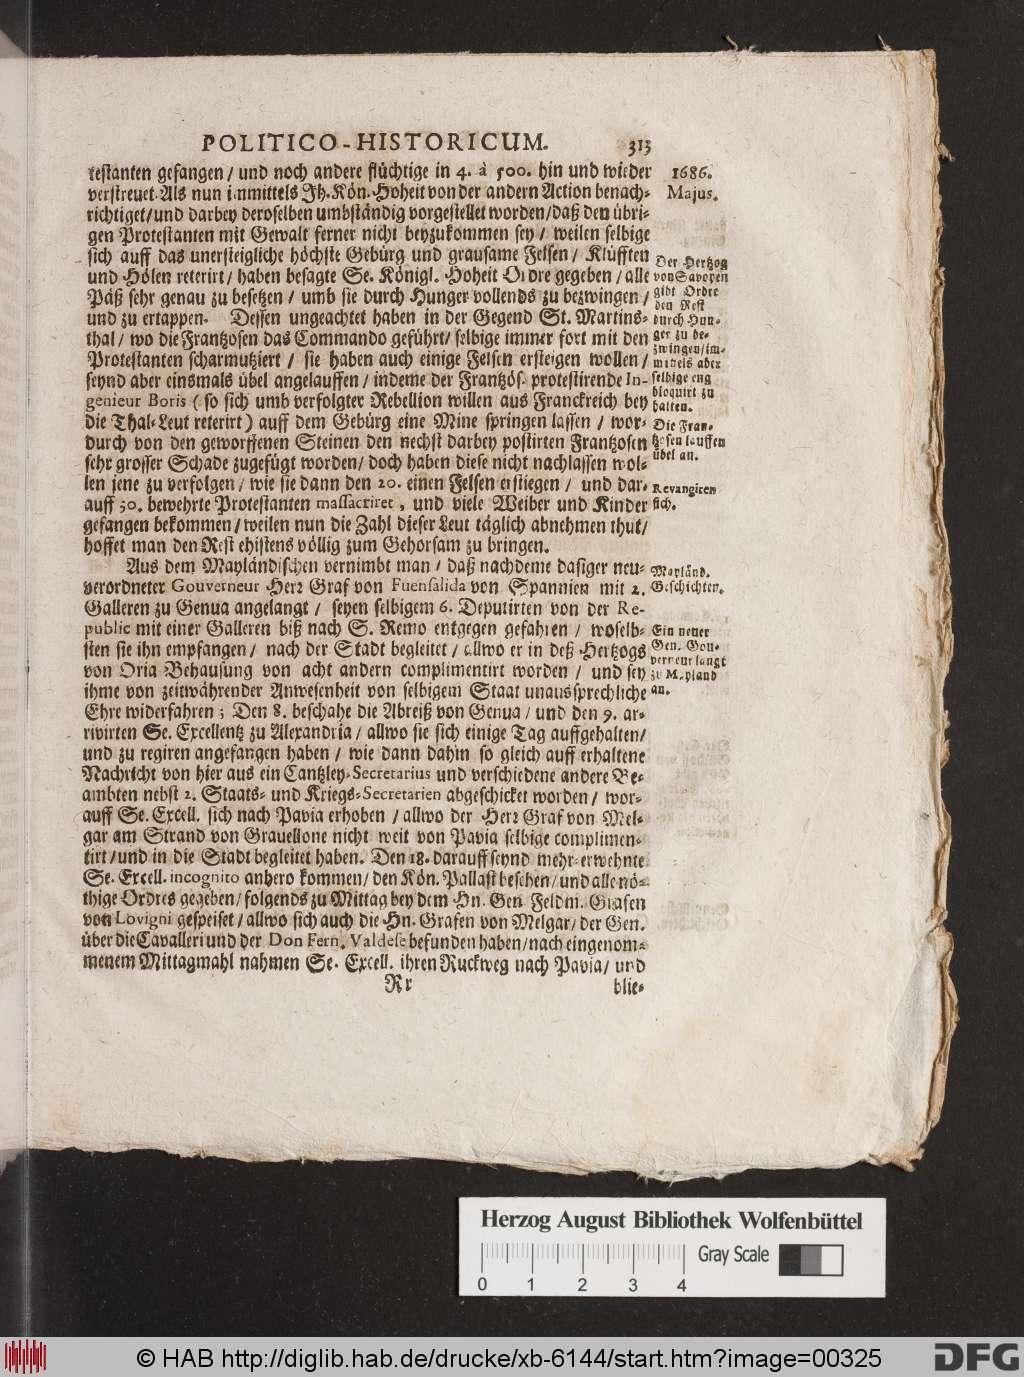 POLITICO-HISTORICUM. 313
testanten gefangen / und noch andere flüchtige in 4. à 500. hin und wieder
verstreuet. Als nun immittels Jh. Kön. Hoheit von der andern Action benach-
richtiget / und darbey deroselben umbständig vorgestellet worden / daß den übri-
gen Protestanten mit Gewalt ferner nicht beyzukommen sey / weilen selbige
sich auff das unersteigliche höchste Gebürg und grausame Felsen / Klüfften
und Hölen reterirt / haben besagte Se. Königl. Hoheit Ordre gegeben / alle
Päß sehr genau zu besetzen / umb sie durch Hunger vollends zu bezwingen /
und zu ertappen. Dessen ungeachtet haben in der Gegend St. Martins-
thal / wo die Frantzosen das Commando geführt / selbige immer fort mit den
Protestanten scharmutziert / sie haben auch einige Felsen ersteigen wollen /
seynd aber einsmals übel angelauffen / indeme der Frantzös. protestirende In-
genieur Boris (so sich umb verfolgter Rebellion willen aus Franckreich bey
die Thal-Leut reterirt) auff dem Gebürg eine Mine springen lassen / wor-
durch von den geworffenen Steinen den nechst darbey postirten Frantzosen
sehr grosser Schade zugefügt worden / doch haben diese nicht nachlassen wol-
len jene zu verfolgen / wie sie dann den 20. einen Felsen erstiegen / und dar-
auff 50. bewehrte Protestanten massacriret, und viele Weiber und Kinder
gefangen bekommen / weilen nun die Zahl dieser Leut täglich abnehmen thut /
hoffet man den Rest ehistens völlig zum Gehorsam zu bringen.
Aus dem Mayländischen vernimbt man / daß nachdeme dasiger neu-
verordneter Gouverneur Herr Graf von Fuensalida von Spannien mit 2.
Galleren zu Genua angelangt / seyen selbigem 6. Deputirten von der Re-
public mit einer Galleren biß nach S. Remo entgegen gefahren / woselb-
sten sie ihn empfangen / nach der Stadt begleitet / allwo er in deß Hertzogs
von Oria Behausung von acht andern complimentirt worden / und sey
ihme von zeitwährender Anwesenheit von selbigem Staat unaussprechliche
Ehre widerfahren; Den 8. beschahe die Abreiß von Genua / und den 9. ar-
rivirten Se. Excellentz zu Alexandria / allwo sie sich einige Tag auffgehalten /
und zu regiren angefangen haben / wie dann dahin so gleich auff erhaltene
Nachricht von hier aus ein Cantzley-Secretarius und verschiedene andere Be-
ambten nebst 2. Staats- und Kriegs-Secretarien abgeschicket worden / wor-
auff Se. Excell. sich nach Pavia erhoben / allwo der Herr Graf von Mel-
gar am Strand von Gravellone nicht weit von Pavia selbige complimen-
tirt / und in die Stadt begleitet haben. Den 18. darauff seynd mehr-erwehnte
Se. Excell. incognito anhero kommen / den Kön. Pallast besehen / und alle nö-
thige Ordres gegeben / folgends zu Mittag bey dem Hn. Gen. Feldm. Grafen
von Lovigni gespeiset / allwo sich auch die Hn. Grafen von Melgar / der Gen.
über die Cavalleri und der Don Fern. Valdese befunden haben / nach eingenom-
menem Mittagmahl nahmen Se. Excell. ihren Ruckweg nach Pavia / und
Rr blie-
1686.
Majus.
Der Hertzog
von Savoyen
gibt Ordre
den Rest
durch Hun-
ger zu be-
zwingen / im-
mittels aber
selbige eng
bloquirt zu
halten.
Die Fran-
tzosen lauffen
übel an.
Revangiren
sich.
Mayländ.
Geschichten.
Ein neuer
Gen. Gou-
verneur langt
zu Mayland
an.
Herzog August Bibliothek Wolfenbüttel
Gray Scale
0 1 2 3 4
© HAB http://diglib.hab.de/drucke/xb-6144/start.htm?image=00325
DFG